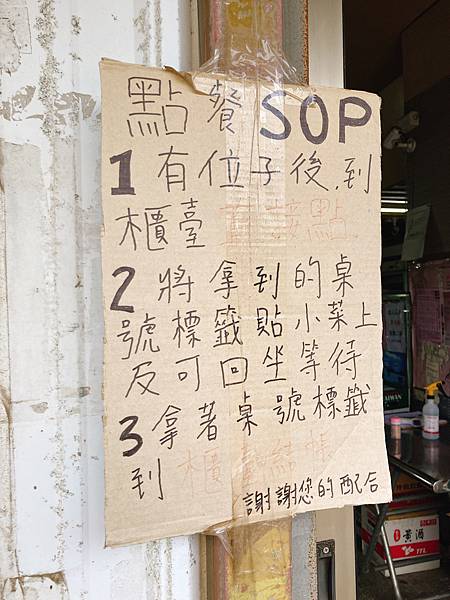 點餐SOP
1有位子後,到
櫃臺直接點
2將拿到的桌
號標籤貼小菜上
反可回坐等待
3拿著桌號標籤
到櫃臺結帳
謝謝您的配合
黃酒
TTL